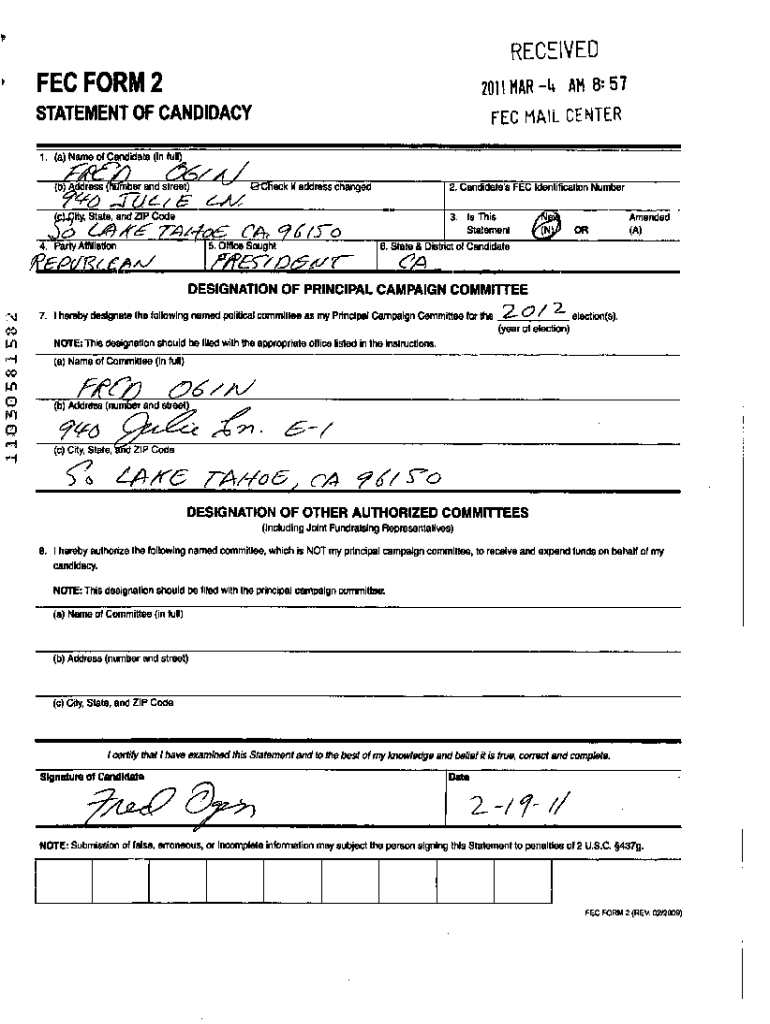 RECEIVED
2011 MAR -4 AM 8:57
FEC MAIL CENTER
FEC FORM 2
STATEMENT OF CANDIDACY
1. (a) Name of Candidate (in full)
FRED OGIN
(b) Address (number and street) Check if address changed
940 JULIE LN.
2. Candidate's FEC Identification Number
(c) City, State, and ZIP Code
So LAKE TAHOE CA. 96150
3. Is This Statement New (N) OR Amended (A)
4. Party Affiliation
REPUBLICAN
5. Office Sought
PRESIDENT
6. State & District of Candidate
CA
DESIGNATION OF PRINCIPAL CAMPAIGN COMMITTEE
7. I hereby designate the following named political committee as my Principal Campaign Committee for the 2012 election(s).
(year of election)
NOTE: This designation should be filed with the appropriate office listed in the instructions.
(a) Name of Committee (in full)
FRED OGIN
(b) Address (number and street)
940 Julie Ln. E-1
(c) City, State, and ZIP Code
So LAKE TAHOE, CA 96150
DESIGNATION OF OTHER AUTHORIZED COMMITTEES
(Including Joint Fundraising Representatives)
8. I hereby authorize the following named committee, which is NOT my principal campaign committee, to receive and expend funds on behalf of my
candidacy.
NOTE: This designation should be filed with the principal campaign committee.
(a) Name of Committee (in full)
(b) Address (number and street)
(c) City, State, and ZIP Code
I certify that I have examined this Statement and to the best of my knowledge and belief it is true, correct and complete.
Signature of Candidate
Fred Ogin
Date
2-19-11
NOTE: Submission of false, erroneous, or incomplete information may subject the person signing this Statement to penalties of 2 U.S.C. §437g.
FEC FORM 2 (REV. 02/2009)
11030581582